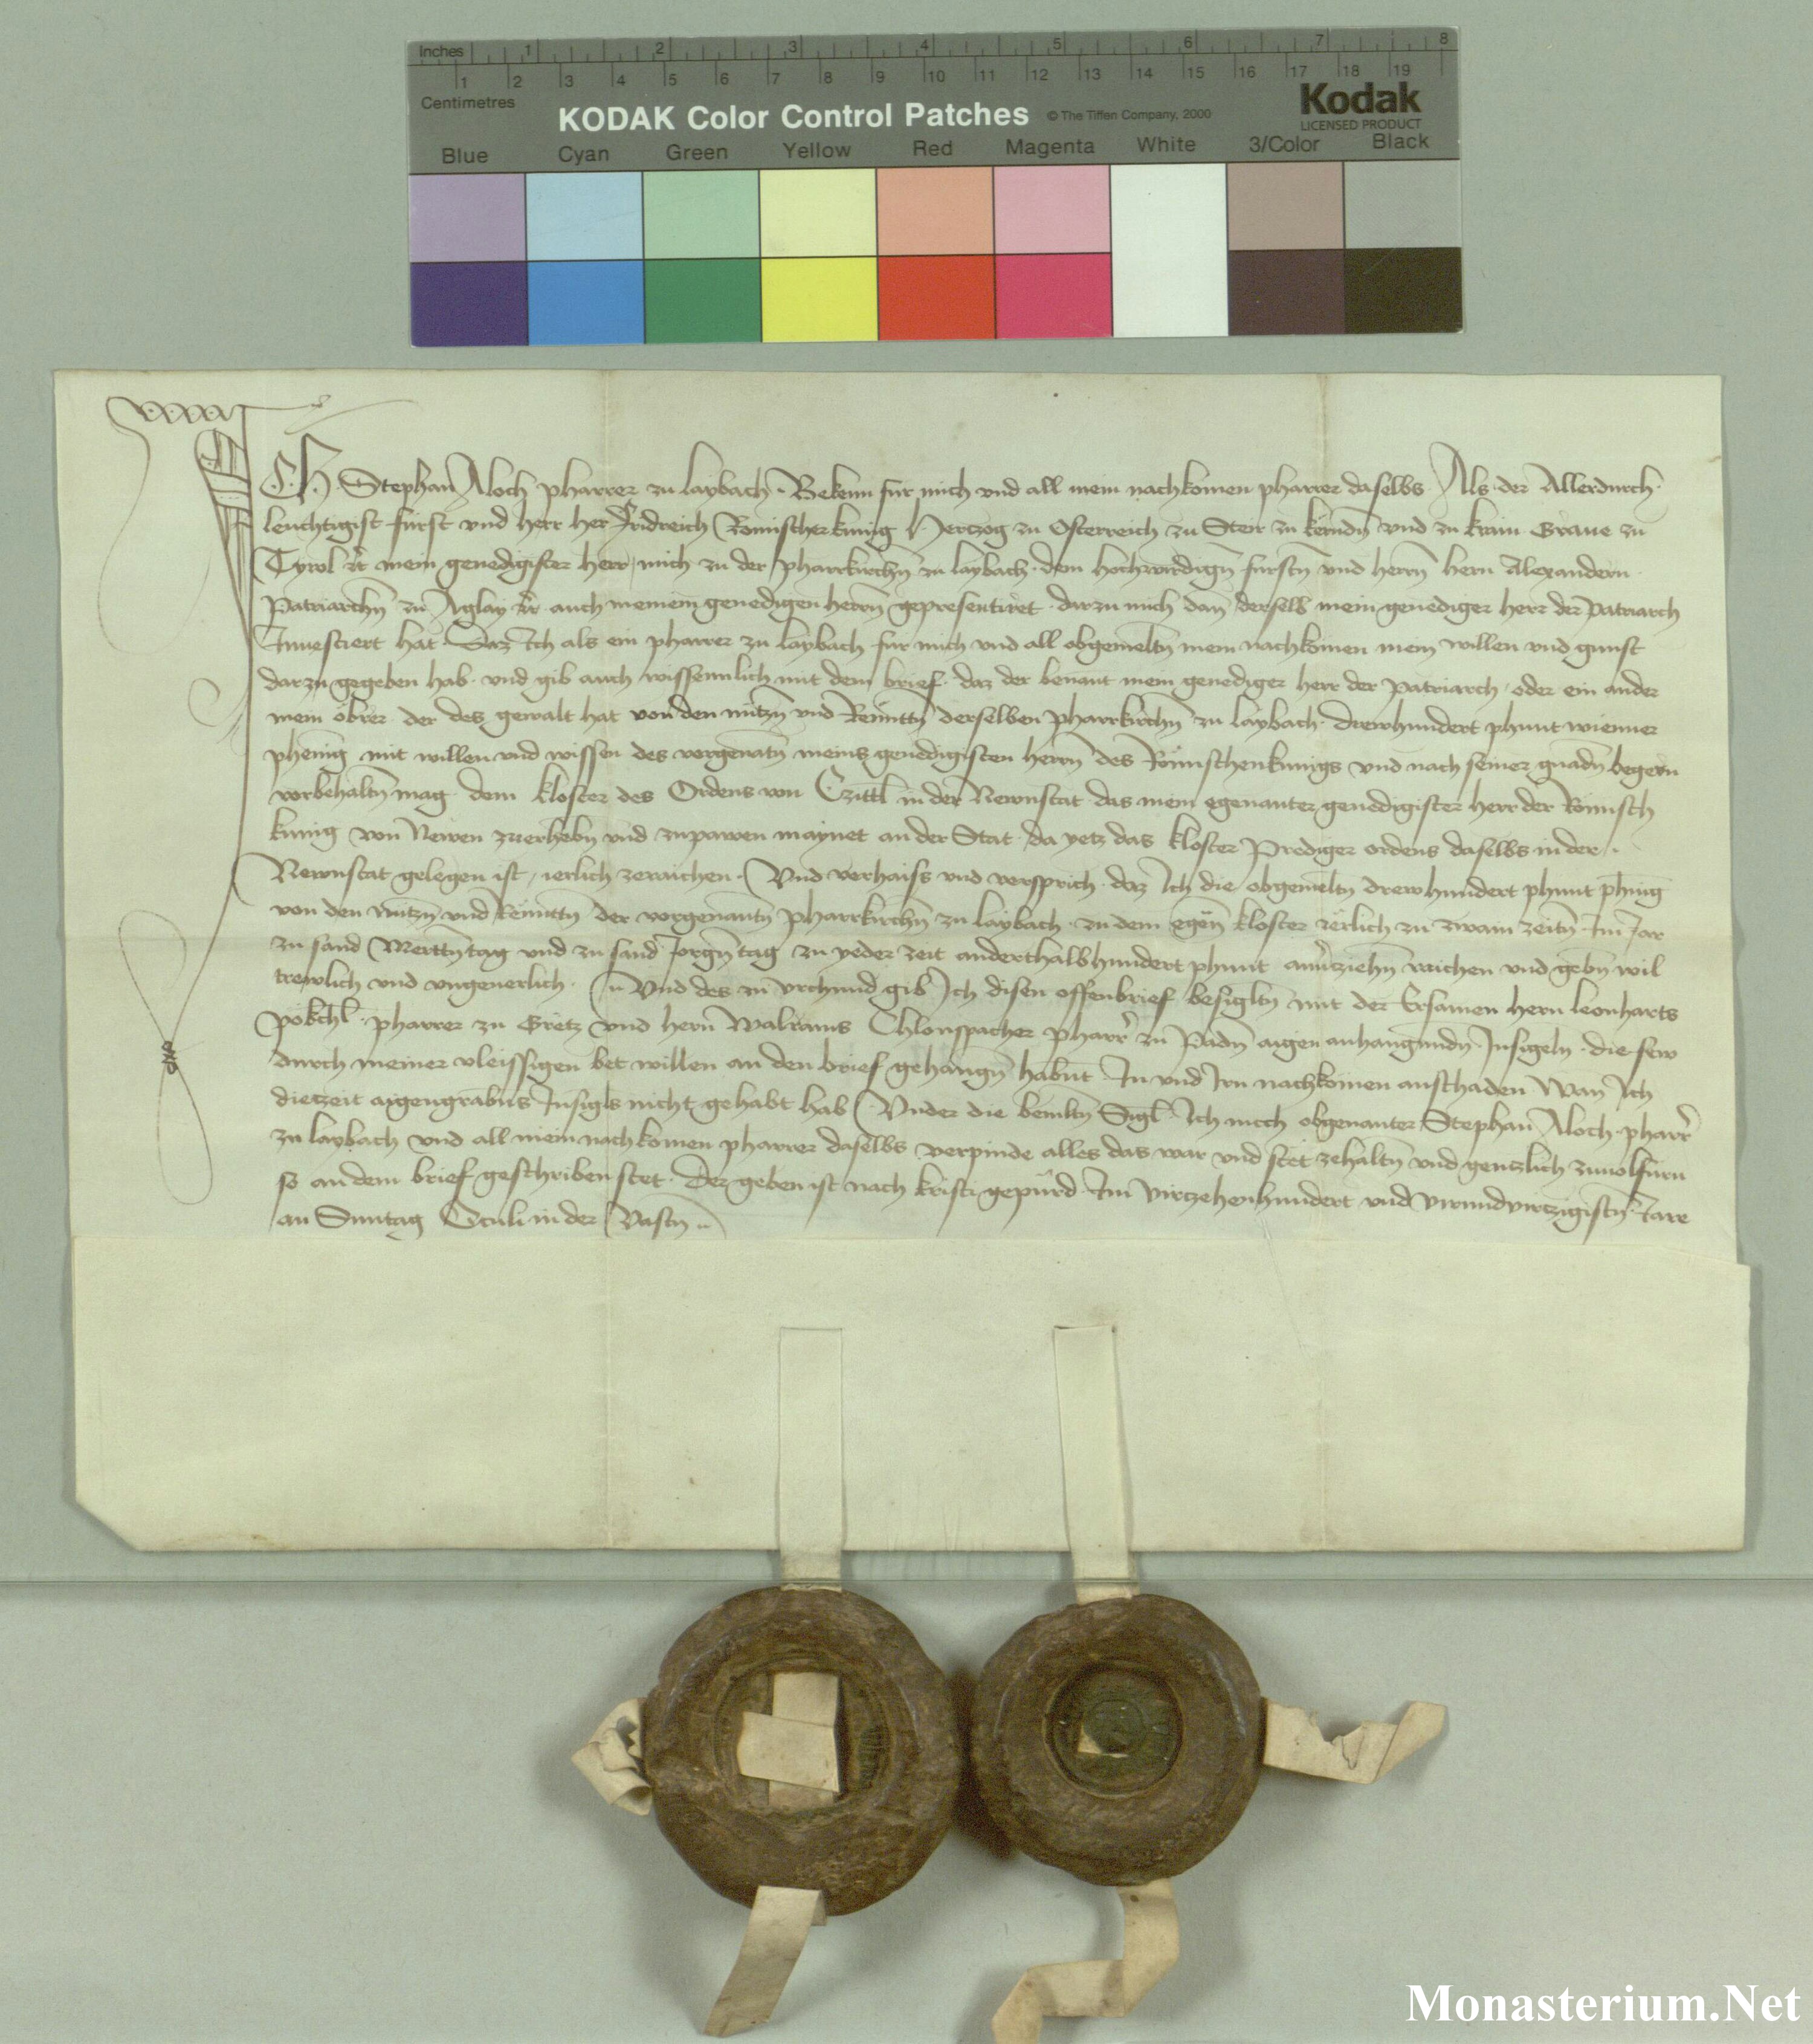 Inches 1 2 3 4 5 6 7 8
1 2 3 4 5 6 7 8 9 10 11 12 13 14 15 16 17 18 19
Centimetres
KODAK Color Control Patches © The Tiffen Company, 2000 Kodak
LICENSED PRODUCT
Blue Cyan Green Yellow Red Magenta White 3/Color Black
ICH Stephan Aloch pharrer zu laybach. Bekenn fur mich vnd all mein nachkomen pharrer daselbs Als der Allerdurch
leuchtigist furst vnd herr her Fridreich Romischer kunig Hertzog zu Osterreich zu Steir zu kernndn vnd zu krain Graue zu
Tyrol etc mein genedigister herr mich zu der pharrkirchn zu laybach dem hochwirdign furstn vnd herrn hern Alexandern
Patriarchn zu Aglay etc auch meinem genedigen herrn gepresentiret darzu mich dan derselb mein genediger herr der patriarch
Inuestiert hat Daz Ich als ein pharrer zu laybach fur mich vnd all obgemeltn mein nachkomen mein willen vnd gunst
darzu gegeben hab vnd gib auch wissennlich mit dem brief daz der benant mein genediger herr der patriarch oder ein ander
mein obrer der des gewalt hat von den nutzn vnd Renntn derselben pharrkirchn zu laybach drewhundert phunt wienner
phenig mit willen vnd wissen des vorgenatn meins genedigisten herrn des Romischenkunigs vnd nach seiner gnadn begern
vorbehaltn mag dem kloster des Ordens von Czittl in der Newnstat das mein egenanter genedigister herr der Romisch
kunig von Newen zuerhebn vnd zupawen maynet an der Stat da yetz das kloster Prediger ordens daselbs in der
Newnstat gelegen ist ierlich zeraichen Vnd verhaiss vnd versprich daz Ich die obgemeltn drewhundert phunt phenig
von den nutzn vnd Renntn der vorgenantn pharrkirchn zu laybach zu dem egen kloster ierlich zu zwain zeitn Im Jar
zu sand Merttntag vnd zu sand Jorgntag zu yeder zeit anderthalbhundert phunt raichen vnd gebn wil
trewlich vnd vngeuerlich Vnd des zu vrchund gib Ich disen offenbrief besigltn mit der Ersamen hern leonharts
pharrer zu Gretz vnd hern Walrams pharrer zu Padn aigen anhangundn Insigeln die sew
durch meiner vleissigen bet willen an den brief gehangn habnt In vnd Irn nachkomen anschaden Wan Ich
dietzeit aigengrabns Insigls nicht gehabt hab Vnder die bemltn Sigl Ich mich obgenanter Stephan Aloch pharrer
zu laybach vnd all mein nachkomen pharrer daselbs verpinde alles das war vnd stet zehaltn vnd gentzlich zuuolfurn
so an dem brief geschriben stet Der geben ist nach kristi gepurd Im virtzehenhundert vnd virundvirtzigistn Jare
an Suntag Oculi in der Vastn
Monasterium.Net